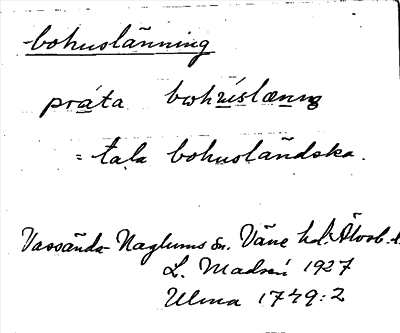 bohuslänning
práta bωhúslænŋ
= tala bohusländska.
Vassända-Naglums sn. Väne hd. Älvsb. l.
L. Madsén 1927
Ulma 1749:2